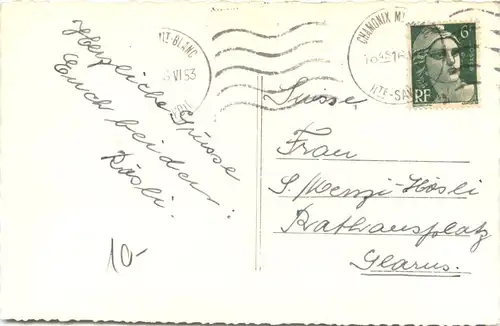 Herzliche Grüsse
Euch beiden:
Rösli.
10-
MT-BLANC
VI 53
CHAMONIX M
HTE-SAV
6F
RF
Suisse,
Frau
S. Menzi-Hösli
Rathausplatz
Glarus.